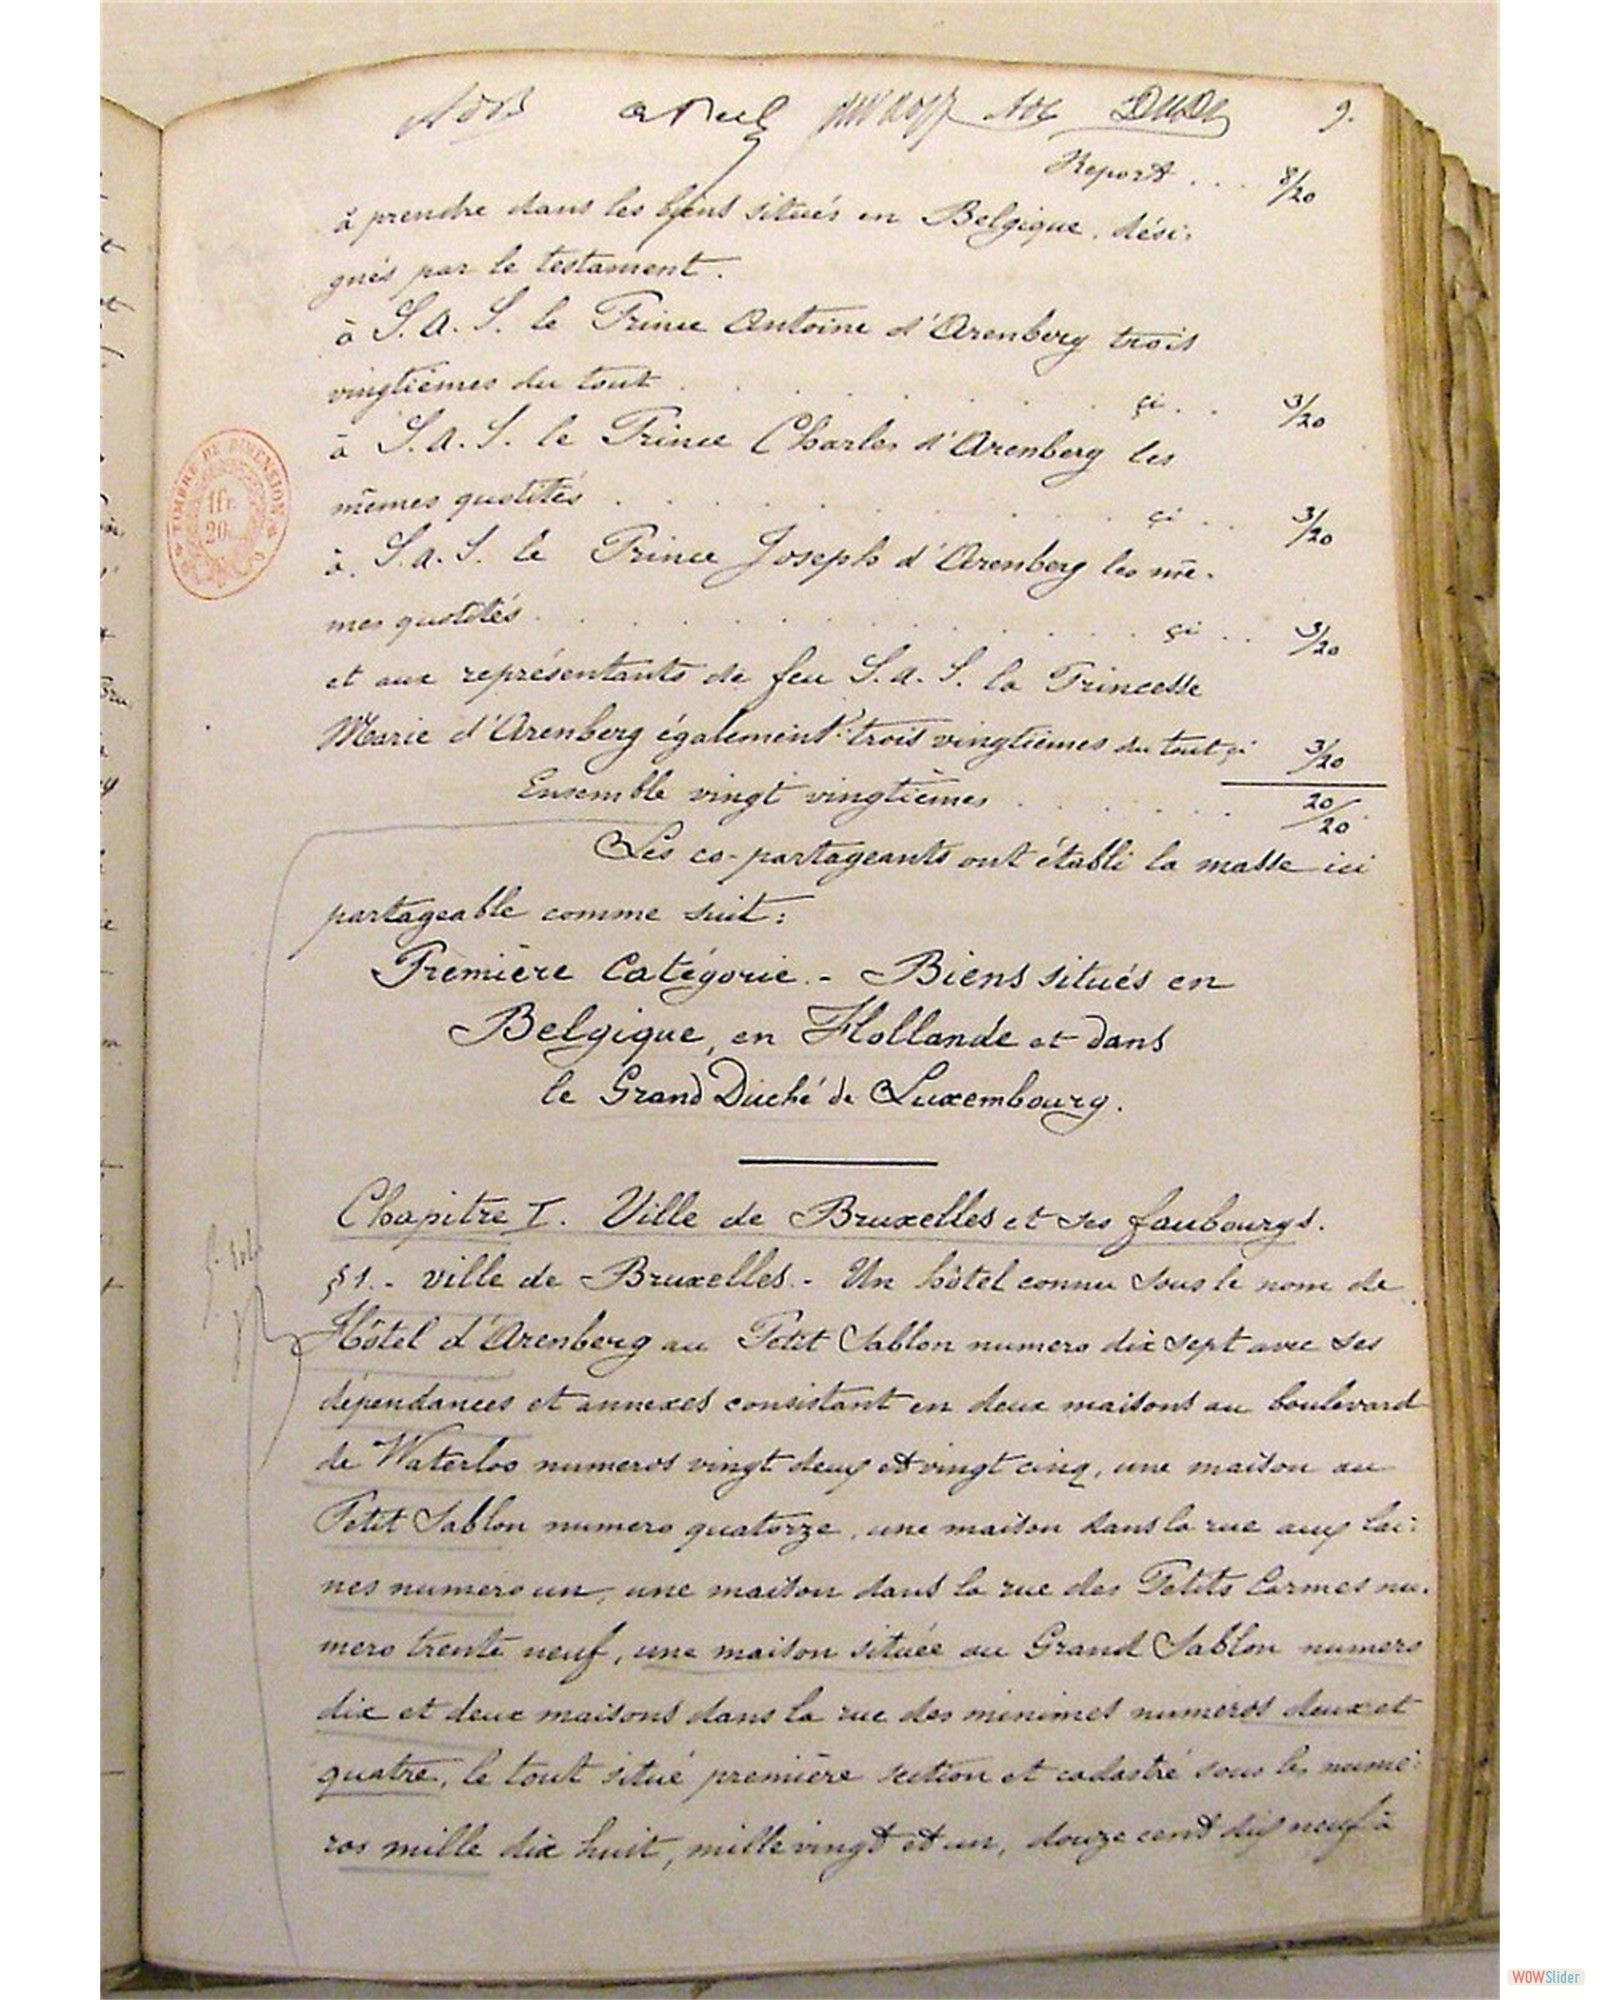 9.
Report . . . 8/20
à prendre dans les biens situés en Belgique, dési-
gnés par le testament.
à S. A. S. le Prince Antoine d'Arenberg trois
vingtièmes du tout . . . . . . . . çi . . 3/20
à S. A. S. le Prince Charles d'Arenberg les
mêmes quotités . . . . . . . . çi . . 3/20
à S. A. S. le Prince Joseph d'Arenberg les mê-
mes quotités . . . . . . . . çi . . 3/20
et aux représentants de feu S. A. S. la Princesse
Marie d'Arenberg également trois vingtièmes du tout çi 3/20
Ensemble vingt vingtièmes . . . . . 20/20
Les co-partageants ont établi la masse ici
partageable comme suit:
Première Catégorie. - Biens situés en
Belgique, en Hollande et dans
le Grand Duché de Luxembourg.
Chapitre I. Ville de Bruxelles et ses faubourgs.
§ 1. - ville de Bruxelles. - Un hôtel connu sous le nom de
Hôtel d'Arenberg au Petit Sablon numero dix sept avec ses
dépendances et annexes consistant en deux maisons au boulevard
de Waterloo numeros vingt deux et vingt cinq, une maison au
Petit Sablon numero quatorze, une maison dans la rue aux Lai-
nes numero un, une maison dans la rue des Petits Carmes nu-
mero trente neuf, une maison située au Grand Sablon numero
dix et deux maisons dans la rue des minimes numeros deux et
quatre, le tout situé première section et cadastré sous les numé-
ros mille dix huit, mille vingt et un, douze cent dix neuf à
TIMBRE DE DIMENSION
1fr.
20c.
WOWSlider